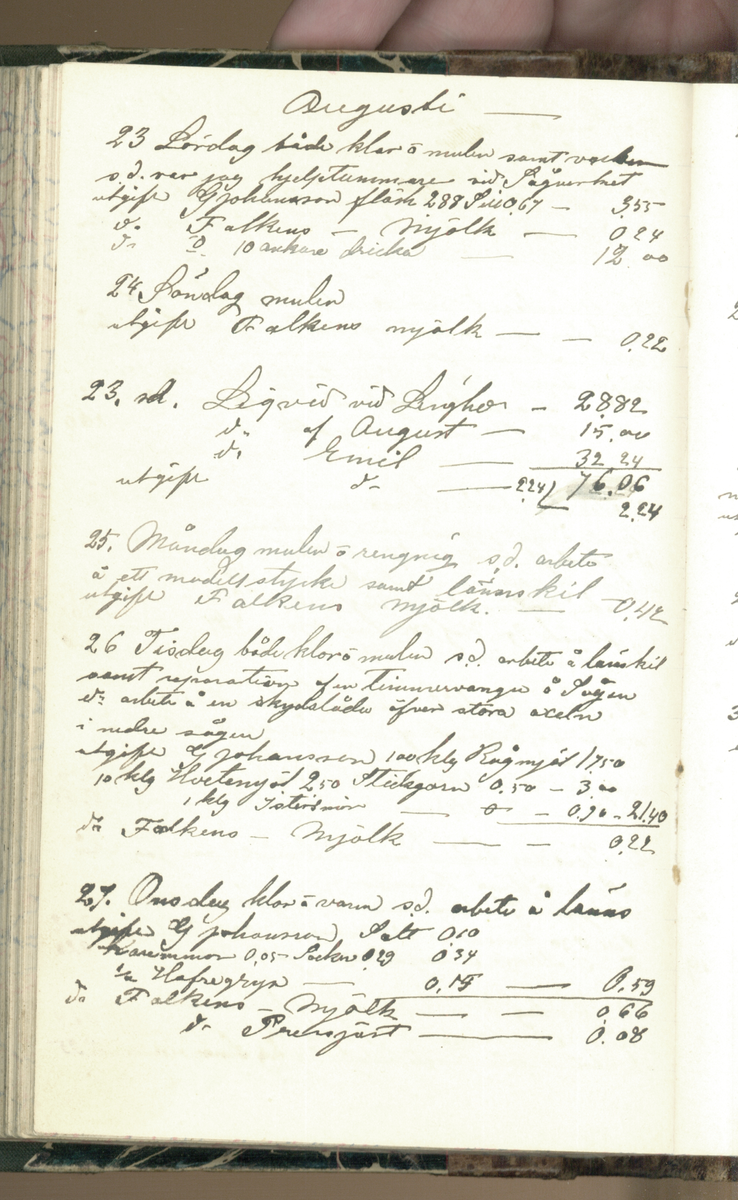 Augusti —
23 Lördag både klar o mulen samt vacker
s.d. var jag hjelptummare vid Sågverket
utgift G Johansson fläsk 288 Sill 0,67 — 3,55
do Falkens — Mjölk — 0,24
do D. 10 ankare dricka — 12.00
24 Söndag mulen
utgift Falkens mjölk — — 0,22
23. sd. Liqvid vid — 28,82
do af August — 15,00
do Emil — 32,24
utgift do — 2,24 76,06
2,24
25. Måndag mulen o rengnig s.d. arbete
å ett modellstycke samt länskil
utgift Falkens Mjölk. — 0,42
26 Tisdag både klar o mulen s.d. arbete å länskil
samt reparation af en timmervangn å Sågen
do arbete å en skydslåda öfver stora axeln
i nedre sågen
utgift G Johansson 100 klg Rågmjöl 17,50
10 klg Hvetemjöl 2,50 Stickgarn 0,50 — 3,00
1 klg Isterister — 0 — 0,90 — 21,40
do Falkens — Mjölk — — 0,22
27. Onsdag klar o varm s.d. arbete å läns
utgift G Johansson Salt 0,10
Kardemmor 0,05 Socker 0,29 0,34
1/2 Hafregryn — 0,15 — 0,59
do Falkens — Mjölk — — 0,66
do Pressjäst — 0,08